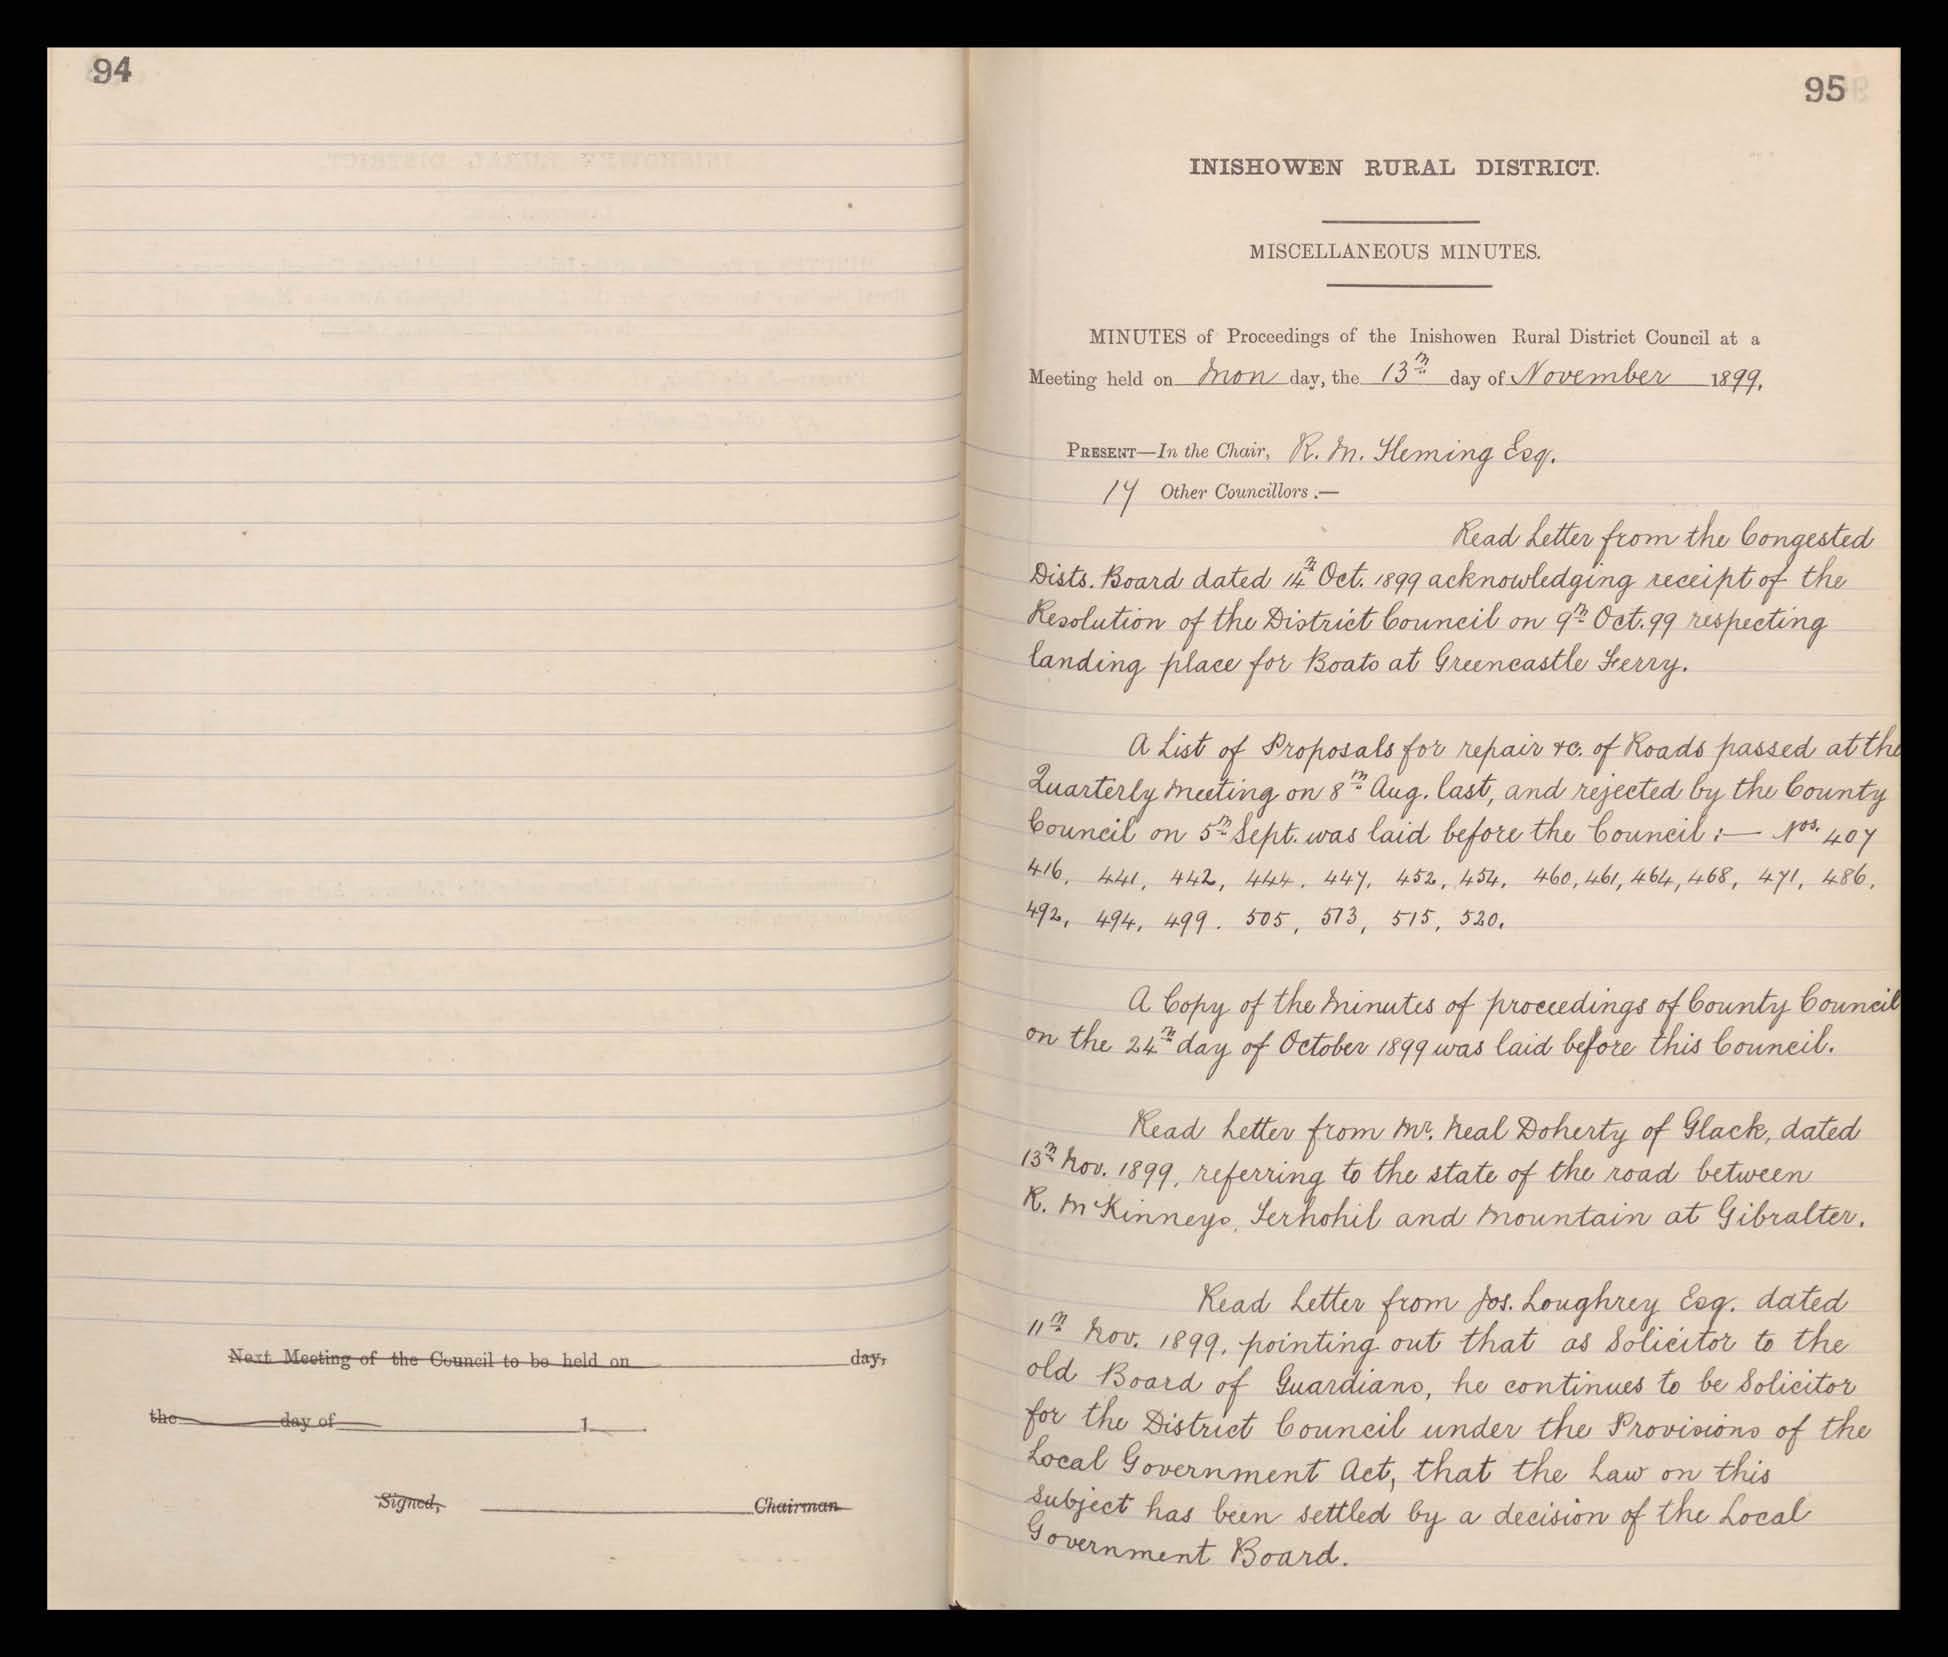 94
Next Meeting of the Council to be held on day,
the day of 1
Signed, Chairman
95
INISHOWEN RURAL DISTRICT.
MISCELLANEOUS MINUTES.
MINUTES of Proceedings of the Inishowen Rural District Council at a
Meeting held on Mon day, the 13th day of November 1899.
PRESENT—In the Chair, R. M. Fleming Esq.
17 Other Councillors :—
Read Letter from the Congested
Dists. Board dated 14th Oct. 1899 acknowledging receipt of the
Resolution of the District Council on 9th Oct. 99 respecting
landing place for Boats at Greencastle Ferry.
A List of Proposals for repair &c. of Roads passed at the
Quarterly Meeting on 8th Aug. last, and rejected by the County
Council on 5th Sept. was laid before the Council :— Nos. 407
416, 441, 442, 444, 447, 452, 454, 460, 461, 464, 468, 471, 486,
492, 494, 499. 505, 513, 515, 520.
A Copy of the Minutes of proceedings of County Council
on the 24th day of October 1899 was laid before this Council.
Read Letter from Mr. Neal Doherty of Glack, dated
13th Nov. 1899, referring to the state of the road between
R. McKinneys, Terhohil and Mountain at Gibralter.
Read Letter from Jos. Loughrey Esq. dated
11th Nov. 1899, pointing out that as Solicitor to the
old Board of Guardians, he continues to be Solicitor
for the District Council under the Provisions of the
Local Government Act, that the Law on this
subject has been settled by a decision of the Local
Government Board.